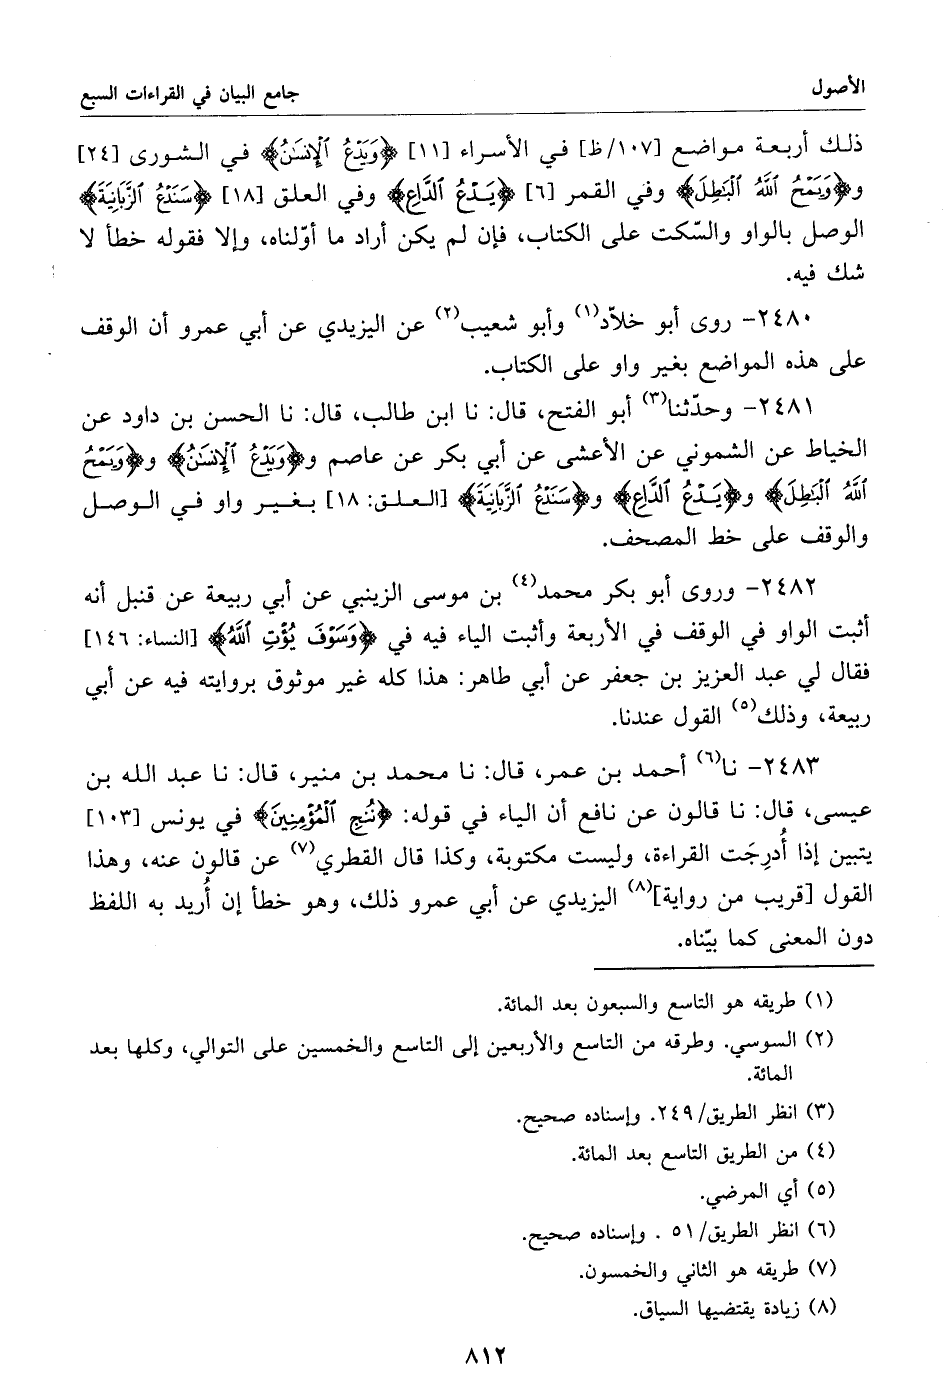 الأصول
جامع البيان في القراءات السبع
ذلك أربعة مواضع [١٠٧/ظ] في الأسراء [١١] ﴿وَيَدْعُ ٱلْإِنسَـٰنُ﴾ في الشورى [٢٤]
و﴿وَيَمْحُ ٱللَّهُ ٱلْبَـٰطِلَ﴾ وفي القمر [٦] ﴿يَدْعُ ٱلدَّاعِ﴾ وفي العلق [١٨] ﴿سَنَدْعُ ٱلزَّبَانِيَةَ﴾
الوصل بالواو والسّكت على الكتاب، فإن لم يكن أراد ما أوّلناه، وإلا فقوله خطأ لا
شك فيه.
٢٤٨٠- روى أبو خلاّد(١) وأبو شعيب(٢) عن اليزيدي عن أبي عمرو أن الوقف
على هذه المواضع بغير واو على الكتاب.
٢٤٨١- وحدّثنا(٣) أبو الفتح، قال: نا ابن طالب، قال: نا الحسن بن داود عن
الخياط عن الشموني عن الأعشى عن أبي بكر عن عاصم و﴿وَيَدْعُ ٱلْإِنسَـٰنُ﴾ و﴿وَيَمْحُ
ٱللَّهُ ٱلْبَـٰطِلَ﴾ و﴿يَدْعُ ٱلدَّاعِ﴾ و﴿سَنَدْعُ ٱلزَّبَانِيَةَ﴾ [العلق: ١٨] بغير واو في الوصل
والوقف على خط المصحف.
٢٤٨٢- وروى أبو بكر محمد(٤) بن موسى الزينبي عن أبي ربيعة عن قنبل أنه
أثبت الواو في الوقف في الأربعة وأثبت الياء فيه في ﴿وَسَوْفَ يُؤْتِ ٱللَّهُ﴾ [النساء: ١٤٦]
فقال لي عبد العزيز بن جعفر عن أبي طاهر: هذا كله غير موثوق بروايته فيه عن أبي
ربيعة، وذلك(٥) القول عندنا.
٢٤٨٣- نا(٦) أحمد بن عمر، قال: نا محمد بن منير، قال: نا عبد الله بن
عيسى، قال: نا قالون عن نافع أن الياء في قوله: ﴿نُنجِ ٱلْمُؤْمِنِينَ﴾ في يونس [١٠٣]
يتبين إذا أُدرِجَت القراءة، وليست مكتوبة، وكذا قال القطري(٧) عن قالون عنه، وهذا
القول [قريب من رواية](٨) اليزيدي عن أبي عمرو ذلك، وهو خطأ إن أُريد به اللفظ
دون المعنى كما بيّناه.
(١) طريقه هو التاسع والسبعون بعد المائة.
(٢) السوسي. وطرقه من التاسع والأربعين إلى التاسع والخمسين على التوالي، وكلها بعد
المائة.
(٣) انظر الطريق/ ٢٤٩. وإسناده صحيح.
(٤) من الطريق التاسع بعد المائة.
(٥) أي المرضي.
(٦) انظر الطريق/ ٥١ . وإسناده صحيح.
(٧) طريقه هو الثاني والخمسون.
(٨) زيادة يقتضيها السياق.
٨١٢